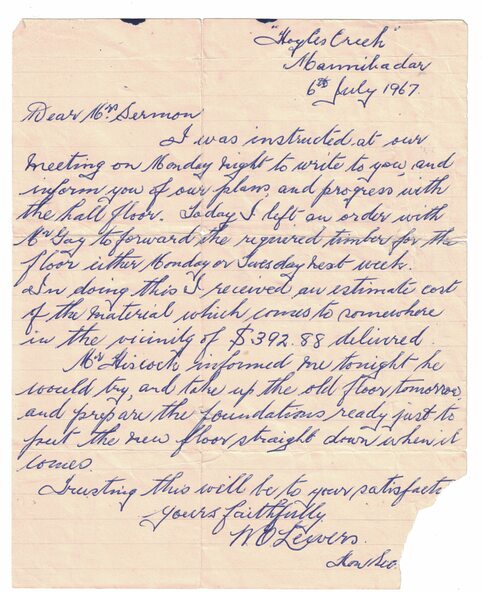 "Hoyles Creek"
Mannibadar
6th July 1967.
Dear Mrs Sermon
I was instructed at our
meeting on Monday night to write to you, and
inform you of our plans, and progress with
the hall floor. Today I left an order with
Mr Gay to forward the required timber for the
floor either Monday or Tuesday next week.
In doing this I received an estimate cost
of the material which comes to somewhere
in the vicinity of $392.88 delivered.
Mr Hiscock informed me tonight he
would try, and take up the old floor tomorrow
and prepare the foundations ready just to
put the new floor straight down when it
comes.
Trusting this will be to your satisfact
yours faithfully
W O Leyvers.
Hon Sec.